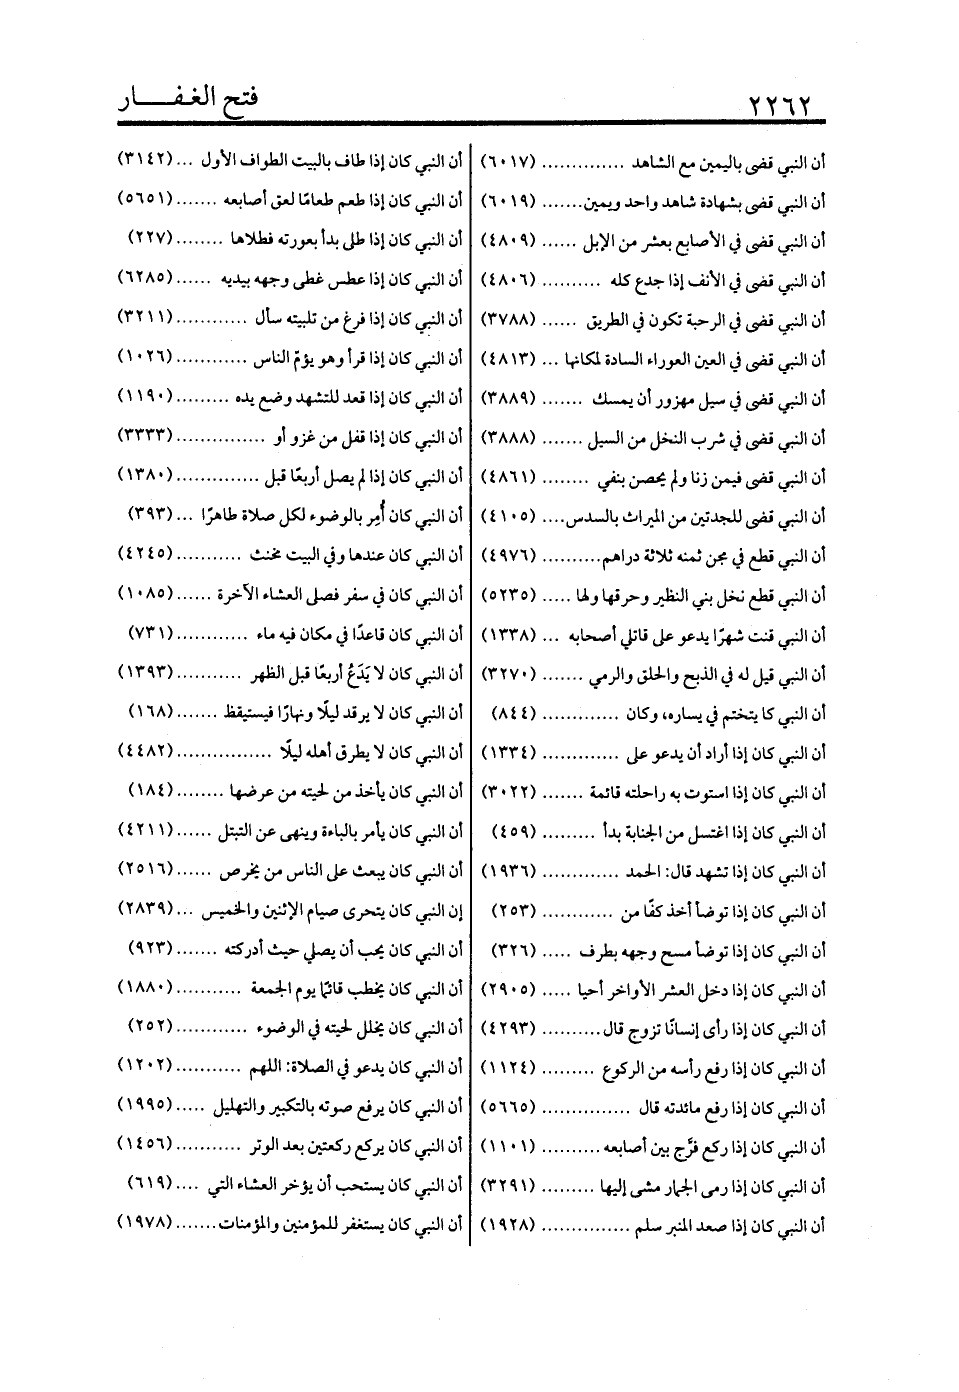 ٢٢٦٢
فتح الغفـــــار
أن النبي قضى باليمين مع الشاهد .............. (٦٠١٧)
أن النبي قضى بشهادة شاهد واحد ويمين....... (٦٠١٩)
أن النبي قضى في الأصابع بعشر من الإبل ...... (٤٨٠٩)
أن النبي قضى في الأنف إذا جدع كله .......... (٤٨٠٦)
أن النبي قضى في الرحبة تكون في الطريق ...... (٣٧٨٨)
أن النبي قضى في العين العوراء السادة لمكانها ... (٤٨١٣)
أن النبي قضى في سيل مهزور أن يمسك ....... (٣٨٨٩)
أن النبي قضى في شرب النخل من السيل ....... (٣٨٨٨)
أن النبي قضى فيمن زنا ولم يحصن بنفي ........ (٤٨٦١)
أن النبي قضى للجدتين من الميراث بالسدس.... (٤١٠٥)
أن النبي قطع في مجن ثمنه ثلاثة دراهم.......... (٤٩٧٦)
أن النبي قطع نخل بني النظير وحرقها ولها ..... (٥٢٣٥)
أن النبي قنت شهرًا يدعو على قاتلي أصحابه ... (١٣٣٨)
أن النبي قيل له في الذبح والحلق والرمي ....... (٣٢٧٠)
أن النبي كا يتختم في يساره، وكان ............. (٨٤٤)
أن النبي كان إذا أراد أن يدعو على ............. (١٣٣٤)
أن النبي كان إذا استوت به راحلته قائمة ....... (٣٠٢٢)
أن النبي كان إذا اغتسل من الجنابة بدأ ......... (٤٥٩)
أن النبي كان إذا تشهد قال: الحمد ............. (١٩٣٦)
أن النبي كان إذا توضأ أخذ كفًا من ............ (٢٥٣)
أن النبي كان إذا توضأ مسح وجهه بطرف ..... (٣٢٦)
أن النبي كان إذا دخل العشر الأواخر أحيا ..... (٢٩٠٥)
أن النبي كان إذا رأى إنسانًا تزوج قال.......... (٤٢٩٣)
أن النبي كان إذا رفع رأسه من الركوع ......... (١١٢٤)
أن النبي كان إذا رفع مائدته قال ............... (٥٦٦٥)
أن النبي كان إذا ركع فرَّج بين أصابعه.......... (١١٠١)
أن النبي كان إذا رمى الجمار مشى إليها ......... (٣٢٩١)
أن النبي كان إذا صعد المنبر سلم ............... (١٩٢٨)
أن النبي كان إذا طاف بالبيت الطواف الأول ... (٣١٤٢)
أن النبي كان إذا طعم طعامًا لعق أصابعه ....... (٥٦٥١)
أن النبي كان إذا طلى بدأ بعورته فطلاها ........ (٢٢٧)
أن النبي كان إذا عطس غطى وجهه بيديه ...... (٦٢٨٥)
أن النبي كان إذا فرغ من تلبيته سأل ............ (٣٢١١)
أن النبي كان إذا قرأ وهو يؤمّ الناس ............ (١٠٢٦)
أن النبي كان إذا قعد للتشهد وضع يده ......... (١١٩٠)
أن النبي كان إذا قفل من غزو أو ............... (٣٣٣٣)
أن النبي كان إذا لم يصل أربعًا قبل .............. (١٣٨٠)
أن النبي كان أُمِر بالوضوء لكل صلاة طاهرًا ... (٣٩٣)
أن النبي كان عندها وفي البيت مخنث ........... (٤٢٤٥)
أن النبي كان في سفر فصلى العشاء الآخرة ...... (١٠٨٥)
أن النبي كان قاعدًا في مكان فيه ماء ............ (٧٣١)
أن النبي كان لا يَدَعُ أربعًا قبل الظهر ........... (١٣٩٣)
أن النبي كان لا يرقد ليلًا ونهارًا فيستيقظ ....... (١٦٨)
أن النبي كان لا يطرق أهله ليلًا ................ (٤٤٨٢)
أن النبي كان يأخذ من لحيته من عرضها ........ (١٨٤)
أن النبي كان يأمر بالباءة وينهى عن التبتل ...... (٤٢١١)
أن النبي كان يبعث على الناس من يخرص ...... (٢٥١٦)
إن النبي كان يتحرى صيام الإثنين والخميس ... (٢٨٣٩)
أن النبي كان يحب أن يصلي حيث أدركته ....... (٩٢٣)
أن النبي كان يخطب قائمًا يوم الجمعة ........... (١٨٨٠)
أن النبي كان يخلل لحيته في الوضوء ............ (٢٥٢)
أن النبي كان يدعو في الصلاة: اللهم ........... (١٢٠٢)
أن النبي كان يرفع صوته بالتكبير والتهليل ..... (١٩٩٥)
أن النبي كان يركع ركعتين بعد الوتر ........... (١٤٥٦)
أن النبي كان يستحب أن يؤخر العشاء التي .... (٦١٩)
أن النبي كان يستغفر للمؤمنين والمؤمنات....... (١٩٧٨)